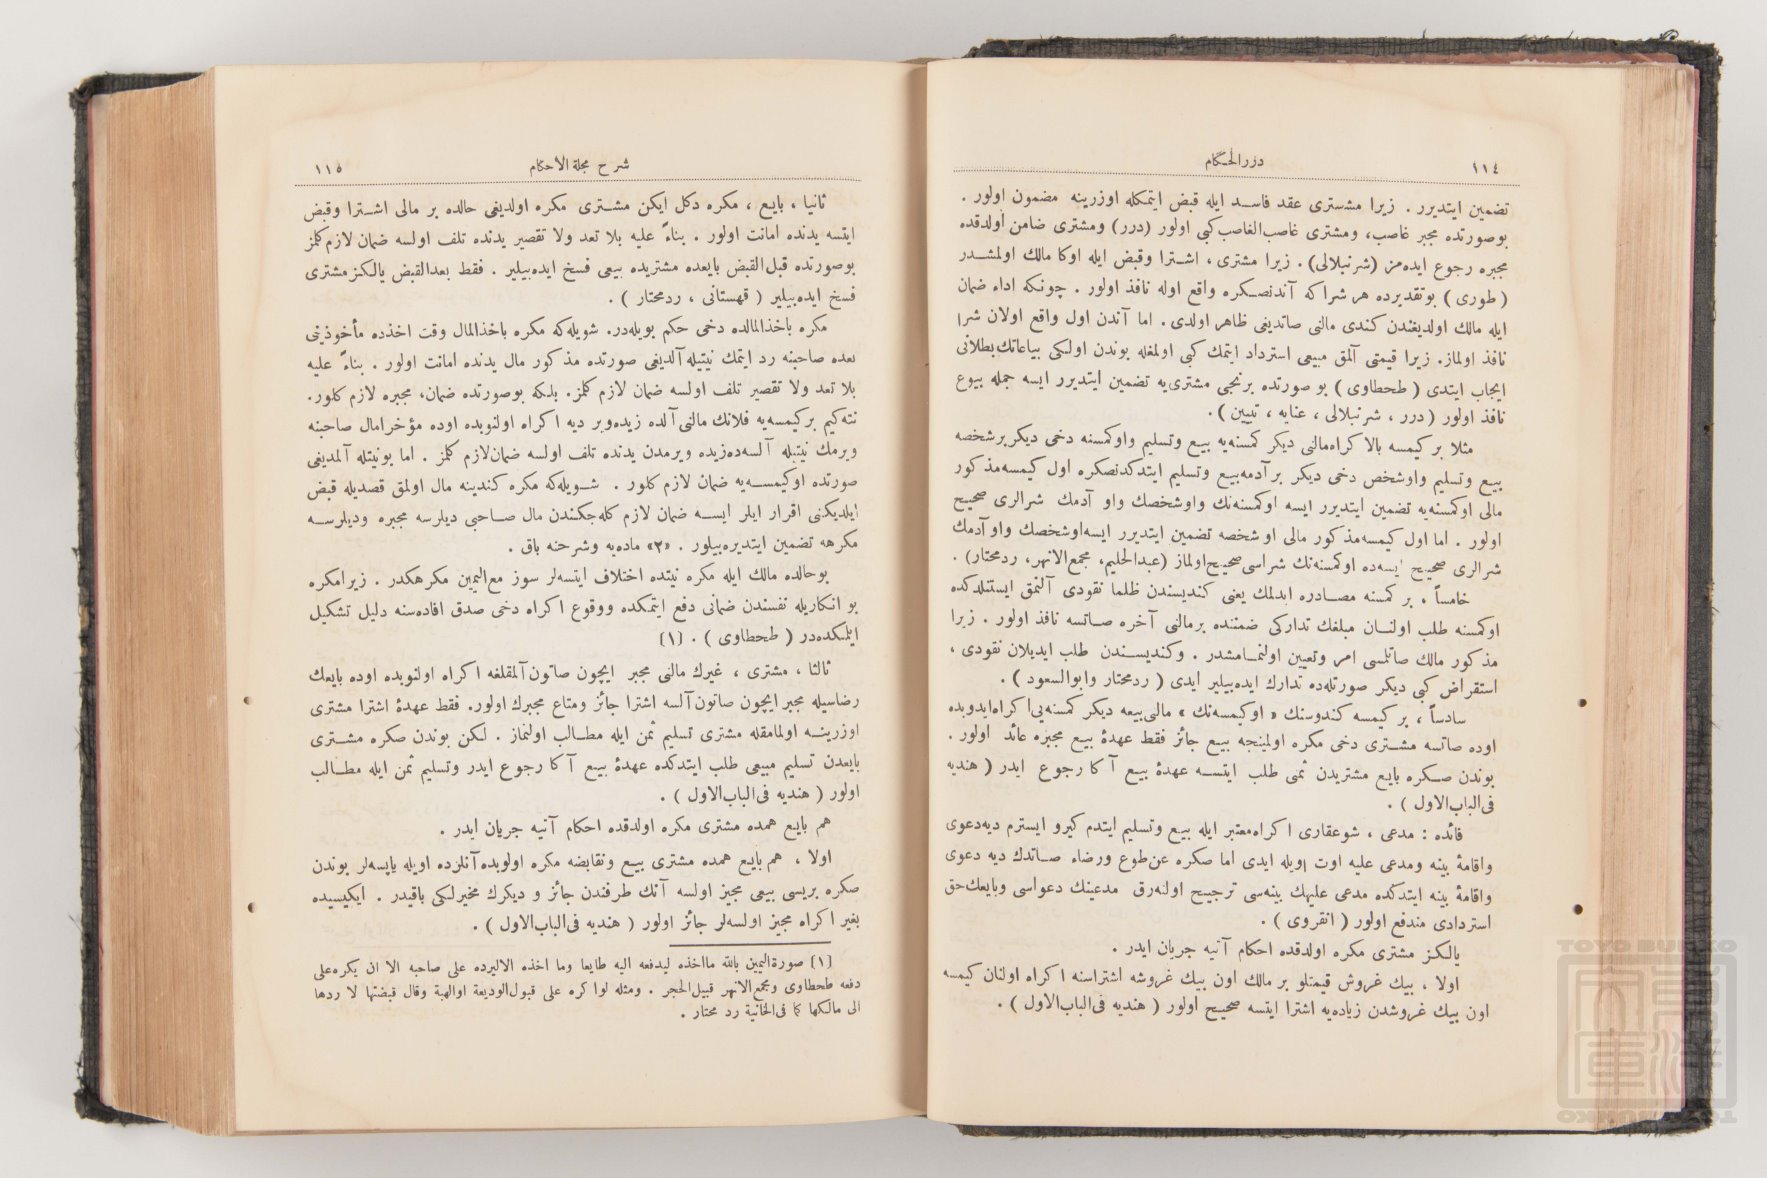 ١١٤
دررالحكام
تضمين ايتديرر . زيرا مشترى عقد فاسد ايله قبض ايتمكله اوزرينه مضمون اولور .
بوصورتده مجبر غاصب، ومشترى غاصب‌الغاصب‌كبى اولور (درر) ومشترى ضامن اولدقده
مجبره رجوع ايده‌مز (شرنبلالى) . زيرا مشترى ، اشترا وقبض ايله اوكا مالك اولمشدر
(طورى) بوتقديرده هر شرا كه آندنصكره واقع اوله نافذ اولور . چونكه اداء ضمان
ايله مالك اولديغندن كندى مالنى صاتديغى ظاهر اولدى . اما آندن اول واقع اولان شرا
نافذ اولماز. زيرا قيمتى آلمق مبيعى استرداد ايتمك كبى اولمغله بوندن اولكى بياعاتك‌بطلانى
ايجاب ايتدى ( طحطاوى ) بو صورتده برنجى مشترى‌يه تضمين ايتديرر ايسه جمله بيوع
نافذ اولور (درر ، شرنبلالى ، عنايه ، تبيين ) .
مثلا بر كيمسه بالا كراه‌مالنى ديكر كمسنه‌يه بيع وتسليم واوكمسنه دخى ديكربرشخصه
بيع وتسليم واوشخص دخى ديكر بر آدمه‌بيع وتسليم ايتدكدنصكره اول كيمسه‌مذكور
مالى اوكمسنه‌يه تضمين ايتديرر ايسه اوكمسنه‌نك واوشخصك واو آدمك شرالرى صحيح
اولور . اما اول كيمسه‌مذكور مالى او شخصه تضمين ايتديرر ايسه‌اوشخصك واوآدمك
شرالرى صحيح ايسه‌ده اوكمسنه‌نك شراسى‌صحيح‌اولماز (عبدالحليم، مجمع‌الانهر، ردمحتار) .
خامساً ، بر كمسنه مصادره ايدلمك يعنى كنديسندن ظلما نقودى آلنمق ايستنلدكده
اوكمسنه طلب اولنان مبلغك تداركى ضمننده برمالنى آخره صاتسه نافذ اولور . زيرا
مذكور مالك صاتلمسى امر وتعيين اولنمامشدر . وكنديسندن طلب ايديلان نقودى ،
استقراض كبى ديكر صورتله‌ده تدارك ايده‌بيلير ايدى ( ردمحتار وابوالسعود ) .
سادساً ، بر كيمسه كندوسنك « اوكيمسه‌نك » مالى‌بيعه ديكر كمسنه‌يى‌اكراه‌ايدوبده
اوده صاتسه مشترى دخى مكره اولمينجه بيع جائز فقط عهدهٔ بيع مجبره عائد اولور .
بوندن صكره بايع مشتريدن ثمنى طلب ايتسه عهدهٔ بيع آ كا رجوع ايدر ( هنديه
فى‌الباب‌الاول ) .
فائده : مدعى ، شوعقارى ا كراه‌معتبر ايله بيع وتسليم ايتدم كيرو ايسترم ديه‌دعوى
واقامهٔ بينه ومدعى عليه اوت اويله ايدى اما صكره عن‌طوع ورضاء صاتدك ديه دعوى
واقامهٔ بينه ايتدكده مدعى عليهك بينه‌سى ترجيح اولنه‌رق مدعينك دعواسى وبايعك‌حق
استردادى مندفع اولور ( انقروى ) .
يالكز مشترى مكره اولدقده احكام آتيه جريان ايدر .
اولا ، بيك غروش قيمتلو بر مالك اون بيك غروشه اشتراسنه ا كراه اولنان كيمسه
اون بيك غروشدن زياده‌يه اشترا ايتسه صحيح اولور ( هنديه فى‌الباب‌الاول ) .
شرح مجلة الاحكام
١١٥
ثانيا ، بايع ، مكره دكل ايكن مشترى مكره اولديغى حالده بر مالى اشترا وقبض
ايتسه يدنده امانت اولور . بناءً عليه بلا تعد ولا تقصير يدنده تلف اولسه ضمان لازم‌كلمز
بوصورتده قبل‌القبض بايعده مشتريده بيعى فسخ ايده‌بيلير . فقط بعدالقبض يالكزمشترى
فسخ ايده‌بيلير ( قهستانى ، ردمحتار ) .
مكره باخذالمالده دخى حكم بويله‌در. شويله‌كه مكره باخذالمال وقت اخذده مأخوذينى
بعده صاحبنه رد ايتمك نيتيله‌آلديغى صورتده مذكور مال يدنده امانت اولور . بناءً عليه
بلا تعد ولا تقصير تلف اولسه ضمان لازم كلمز. بلكه بوصورتده ضمان، مجبره لازم كلور.
نته‌كيم بركيمسه‌يه فلانك مالنى آلده زيده‌وير ديه ا كراه اولنوبده اوده مؤخرامال صاحبنه
ويرمك نيتيله آلسه‌ده‌زيده ويرمدن يدنده تلف اولسه ضمان‌لازم كلمز . اما بونيتله آلمديغى
صورتده اوكيمسه‌يه ضمان لازم كلور . شويله‌كه مكره كندينه مال اولمق قصديله قبض
ايلديكنى اقرار ايلر ايسه ضمان لازم كله‌جكندن مال صاحبى ديلرسه مجبره وديلرسه
مكرهه تضمين ايتديره‌بيلور . «٣» ماده‌يه وشرحنه باق .
بوحالده مالك ايله مكره نيتده اختلاف ايتسه‌لر سوز مع‌اليمين مكرهكدر . زيرامكره
بو انكاريله نفسندن ضمانى دفع ايتمكده ووقوع اكراه دخى صدق افاده‌سنه دليل تشكيل
ايلمكده‌در ( طحطاوى ) . [١]
ثالثا ، مشترى ، غيرك مالنى مجبر ايچون صاتون‌آلمقلغه ا كراه اولنوبده اوده بايعك
رضاسيله مجبر ايچون صاتون‌آلسه اشترا جائز ومتاع مجبرك اولور. فقط عهدهٔ اشترا مشترى
اوزرينه اولمامقله مشترى تسليم ثمن ايله مطالب اولنماز . لكن بوندن صكره مشترى
بايعدن تسليم مبيعى طلب ايتدكده عهدهٔ بيع آ كا رجوع ايدر وتسليم ثمن ايله مطالب
اولور ( هنديه فى‌الباب‌الاول ) .
هم بايع همده مشترى مكره اولدقده احكام آتيه جريان ايدر .
اولا ، هم بايع همده مشترى بيع وتقابضه مكره اولوبده‌آنلرده اويله ياپسه‌لر بوندن
صكره بريسى بيعى مجيز اولسه آنك طرفندن جائز و ديكرك مخيرلكى باقيدر . ايكيسيده
بغير ا كراه مجيز اولسه‌لر جائز اولور ( هنديه فى‌الباب‌الاول ) .
[١] صورةاليمين بالله مااخذه ليدفعه اليه طايعا وما اخذه الاليرده على صاحبه الا ان يكره‌على
دفعه طحطاوى ومجمع‌الانهر قبيل‌الحجر . ومثله لوا كره على قبول‌الوديعة اوالهبة وقال قبضتها لا ردها
الى مالكها كما فى‌الخانية رد محتار .
TOYO BUNKO